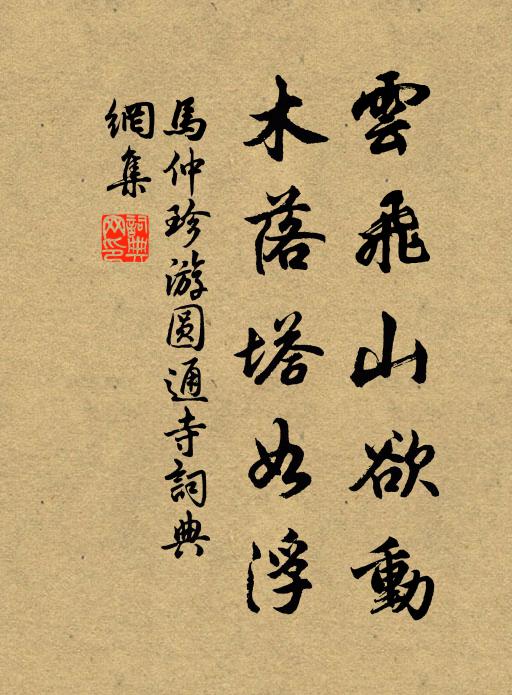 雲飛山欲動
木落塔如浮
馬仲珍游圓通寺詞典
網集
詞典
网印